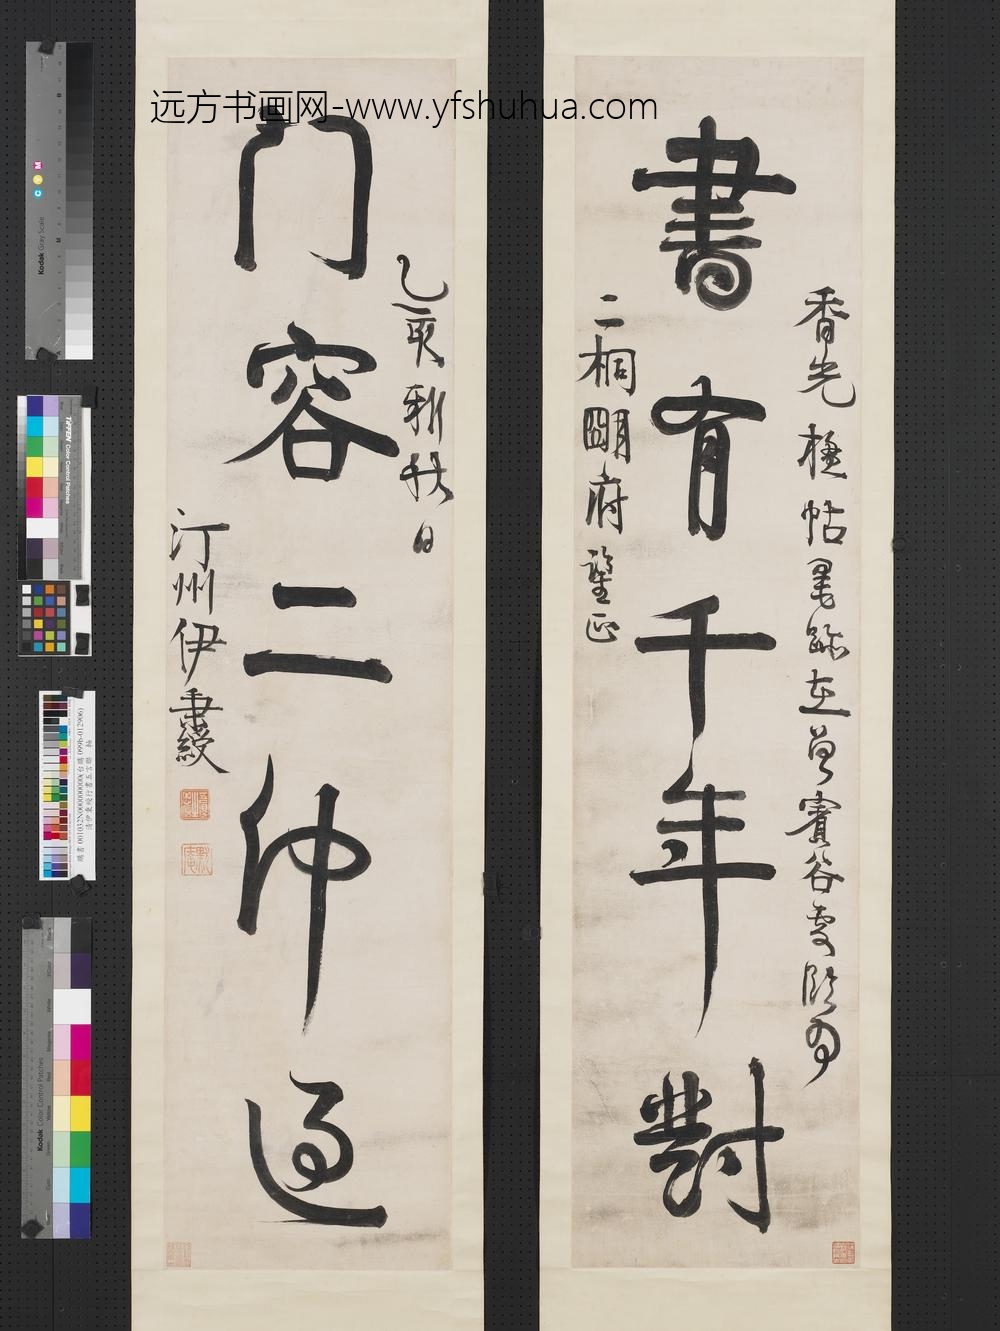 远方书画网-www.yfshuhua.com
書有千年對
香光橅帖墨跡在曾賓谷處
二桐明府鑒正
门容二仲過
乙亥新秋日
汀州伊秉綬
Kodak Gray Scale
C Y M
TIFFEN Color Control Patches
Kodak Color Control Patches
清伊秉綬行書五言聯 軸